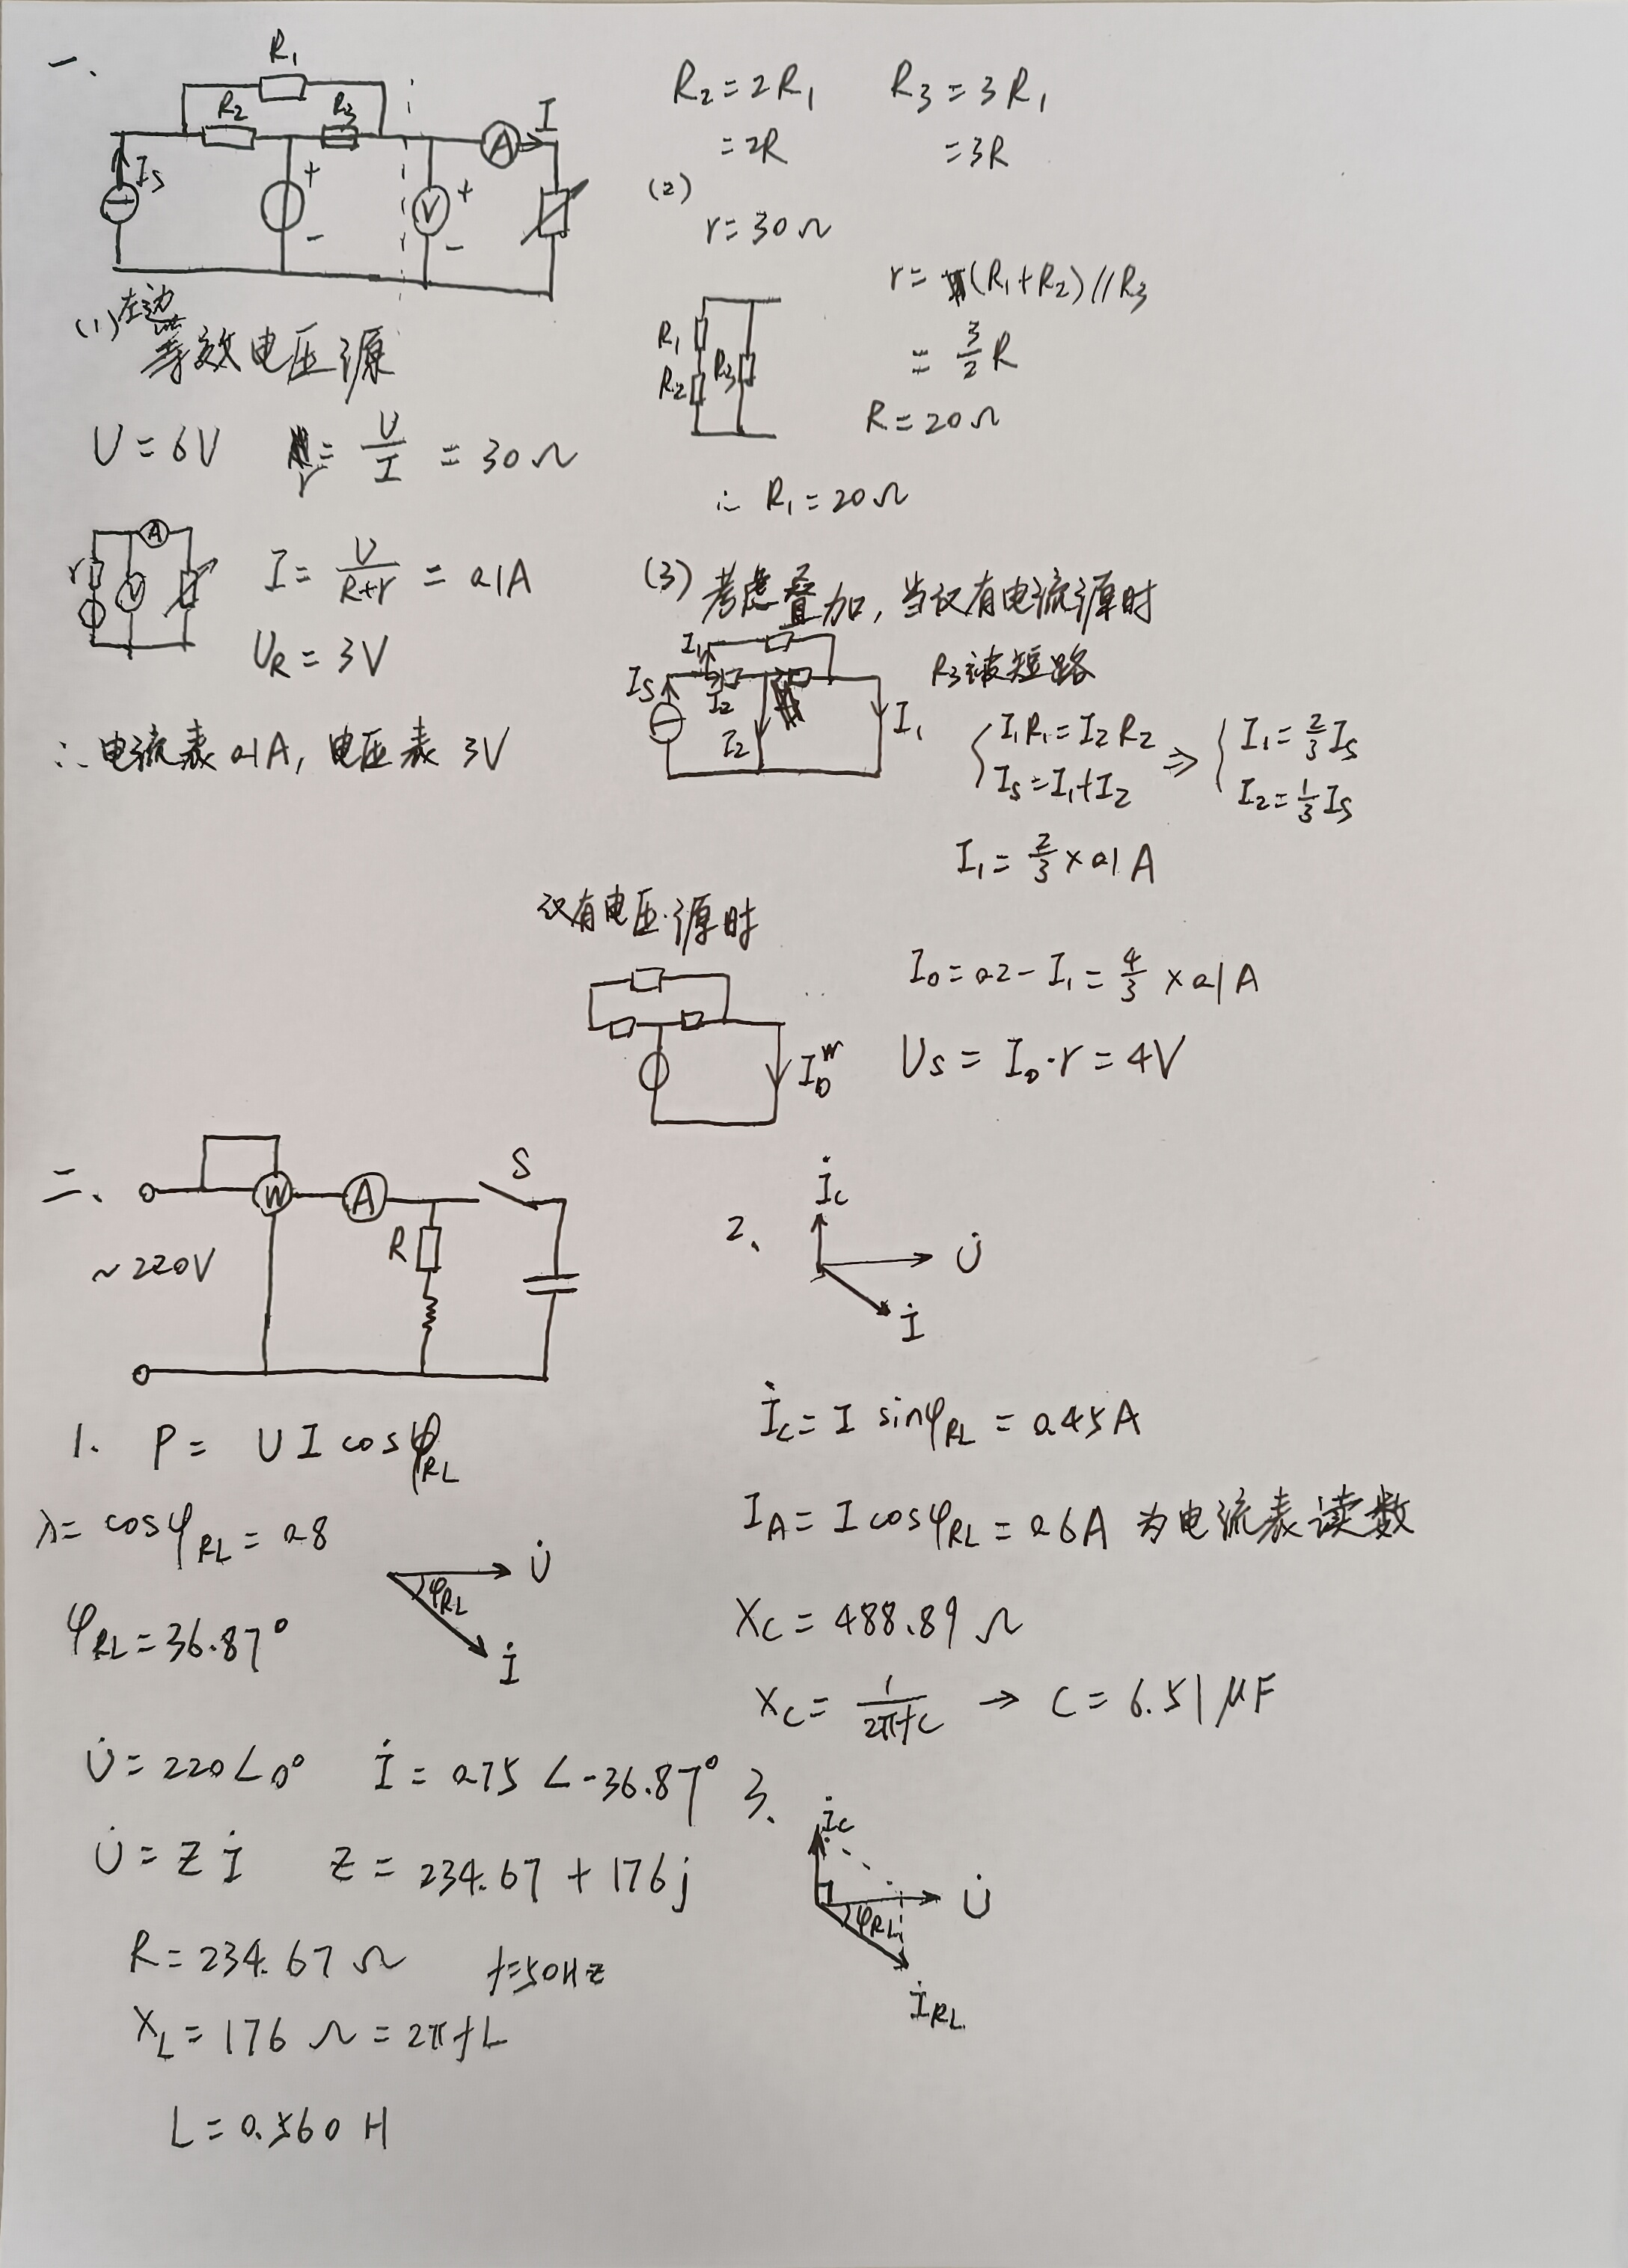 一、
R₁
R₂ R₃
Is
+
-
V
+
-
A
I
R₂=2R₁ R₃=3R₁
=2R =3R
(1) 左边
等效电压源
U=6V r=U/I=30Ω
r V A
I=U/(R+r)=0.1A
U_R=3V
∴电流表0.1A, 电压表 3V
(2)
r=30Ω
R₁ R₂ R₃
r=(R₁+R₂)//R₃
=3/2 R
R=20Ω
∴ R₁=20Ω
(3) 考虑叠加, 当仅有电流源时
R₃被短路
Is I₁ I₂ I₂ I₁
{I₁R₁=I₂R₂ Is=I₁+I₂ ⇒ {I₁=2/3 Is I₂=1/3 Is
I₁=2/3×0.1A
仅有电压源时
I₀
I₀=0.2-I₁=4/3×0.1A
Us=I₀·r=4V
二、
W A S
R
~220V
1. P= UIcosφ_RL
λ=cosφ_RL=0.8
φ_RL=36.87°
U̇
φ_RL
İ
U̇=220∠0° İ=0.75∠-36.87°
U̇=Zİ Z=234.67+176j
R=234.67Ω f=50Hz
X_L=176Ω=2πfL
L=0.560H
2、
İc
U̇
İ
İc=I sinφ_RL=0.45A
I_A=Icosφ_RL=0.6A 为电流表读数
Xc=488.89Ω
Xc=1/(2πfC) → C=6.51μF
3、
İc
U̇
φ_RL
İ_RL